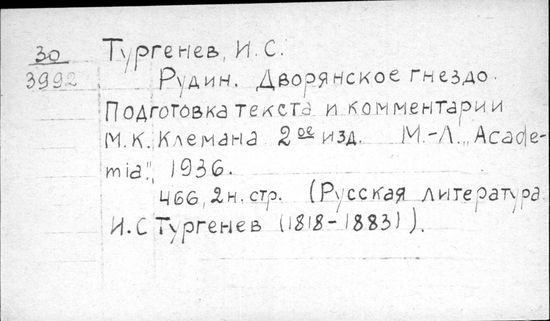 30 Тургенев, И.С.
3992 Рудин. Дворянское гнездо.
Подготовка текста и комментарии
М.К. Клемана 2ое изд. М.-Л. „Acade-
mia", 1936.
466, 2 н. стр. (Русская литература
И.С Тургенев (1818-1883)).